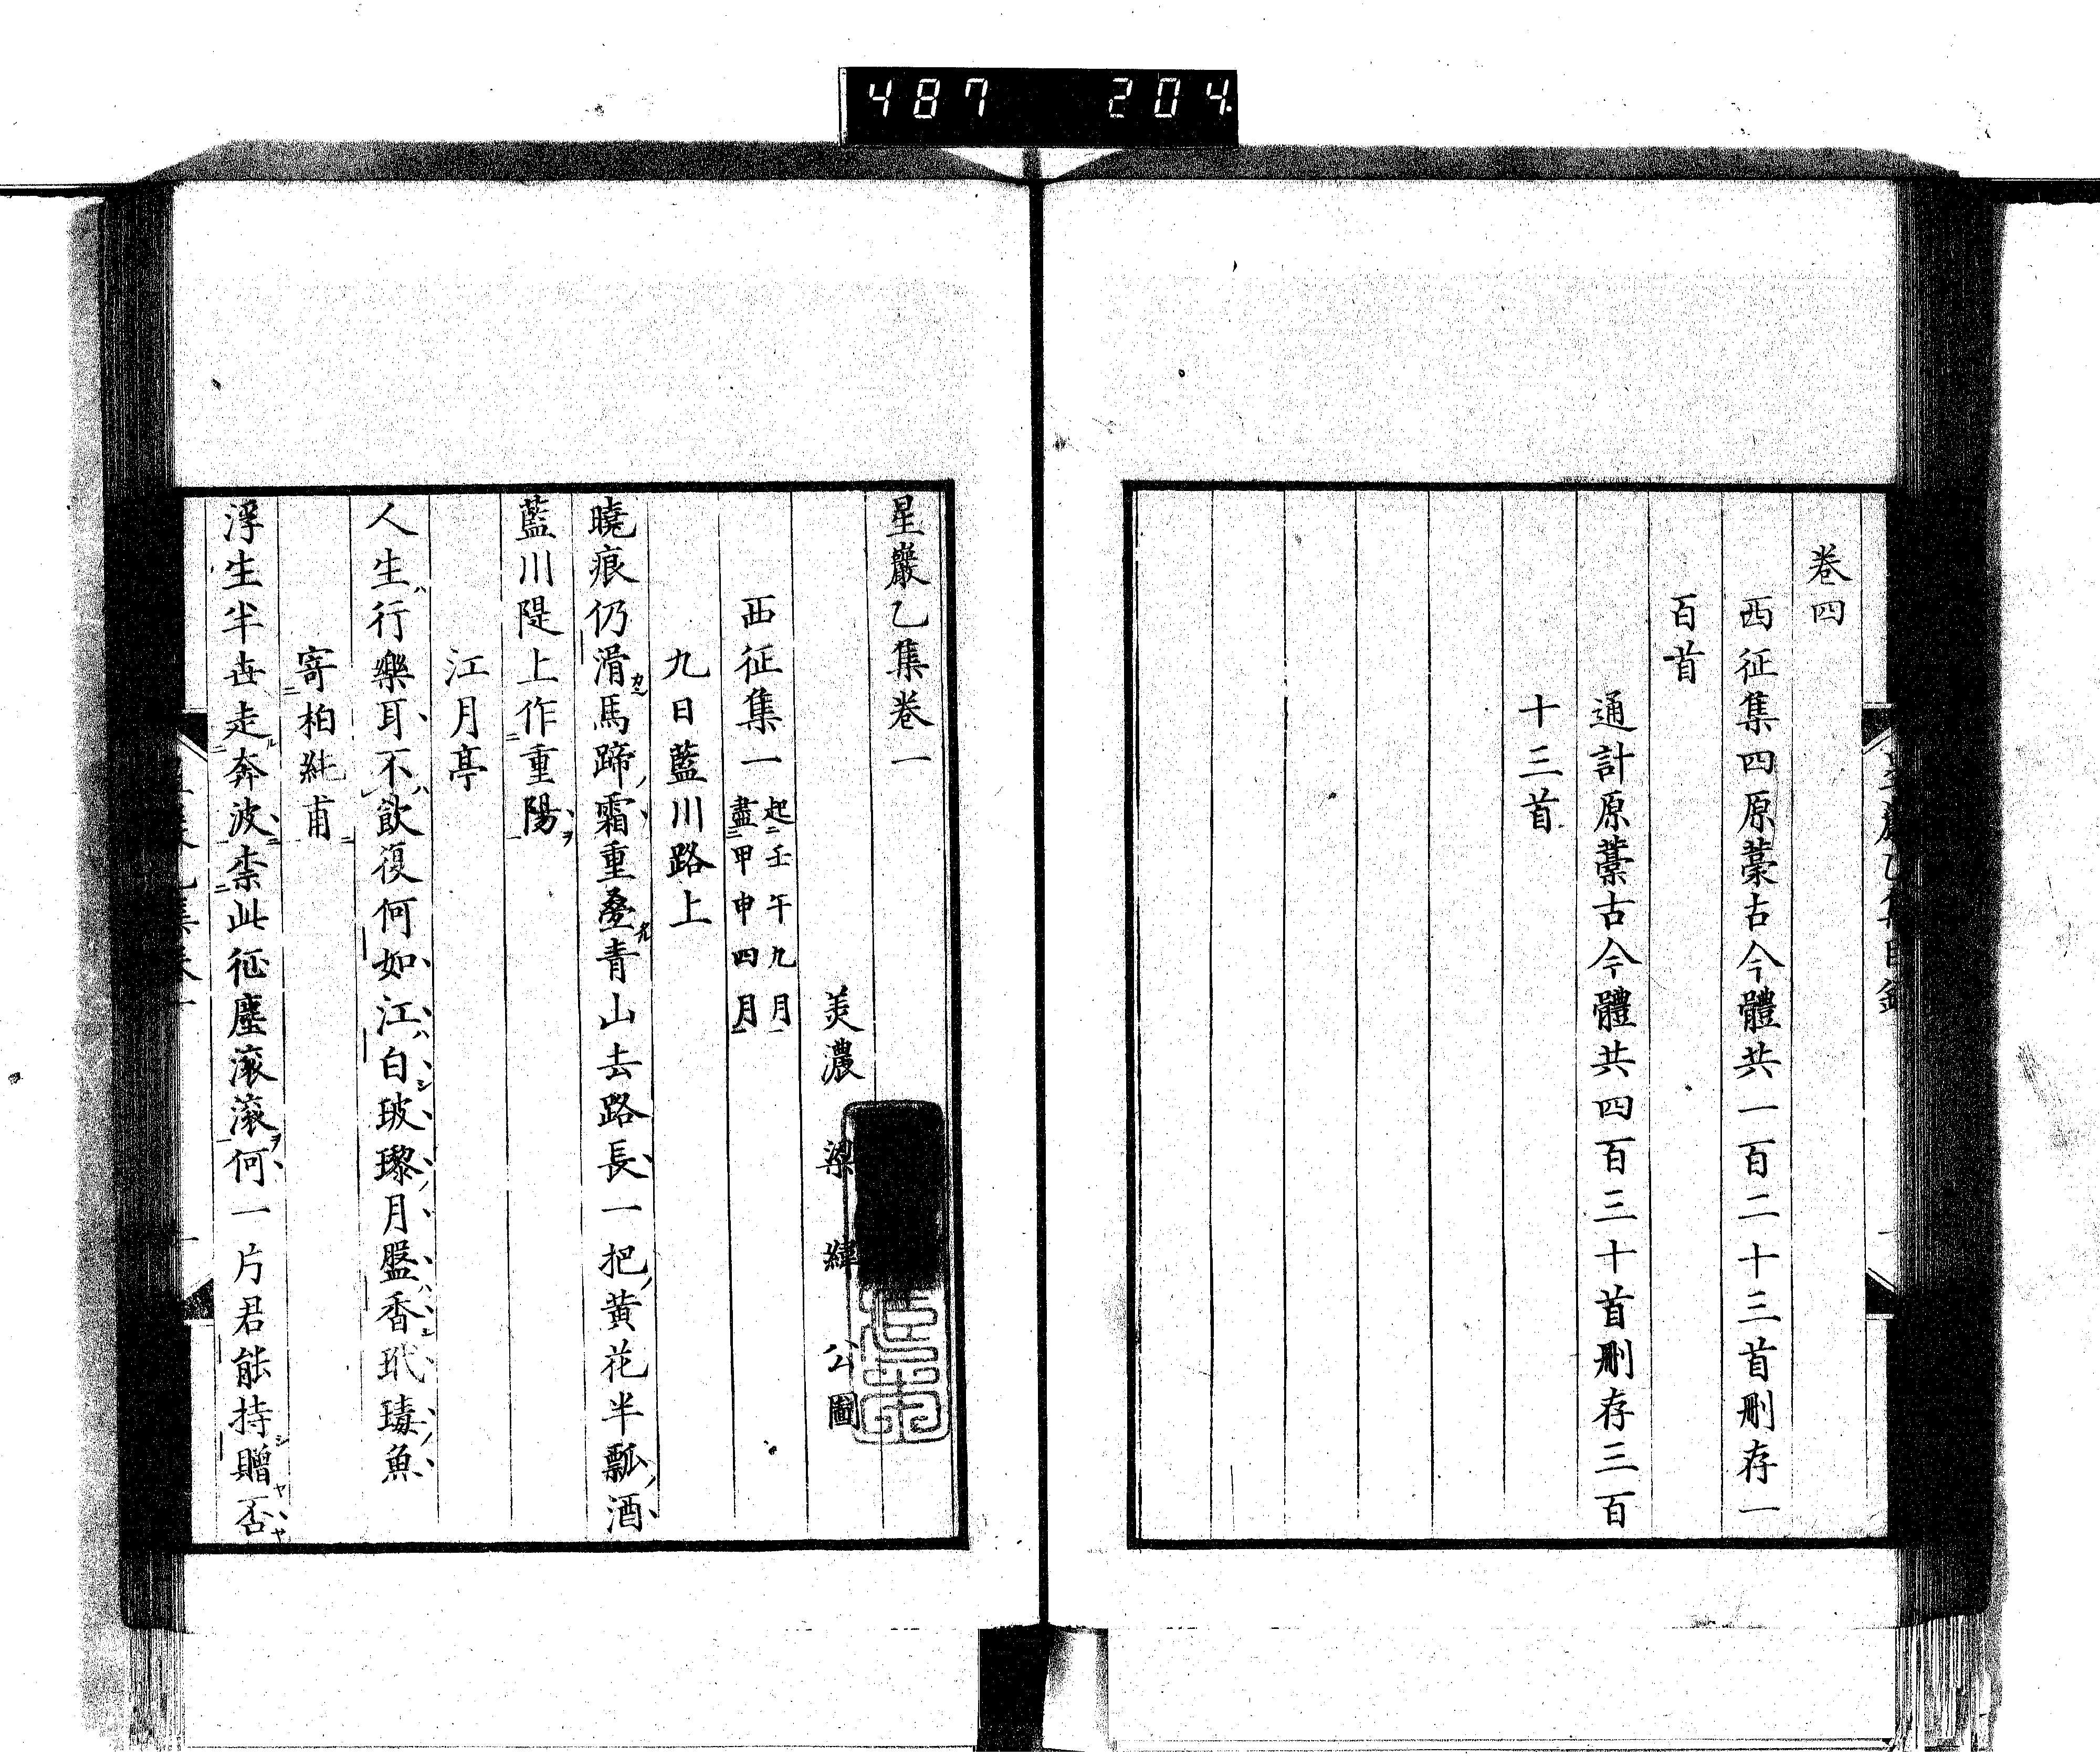 487 204
卷四
西征集四原藁古今體共一百二十三首刪存一
百首
通計原藁古今體共四百三十首刪存三百
十三首
星巖乙集卷一
美濃 梁緯 公圖
西征集一 起壬午九月
盡甲申四月
九日藍川路上
曉痕仍滑馬蹄霜重疊青山去路長一把黃花半瓢酒
藍川隄上作重陽
江月亭
人生行樂耳不飲復何如江白玻瓈月盤香玳瑇魚
寄柏純甫
浮生半世走奔波柰此征塵滾滾何一片君能持贈否